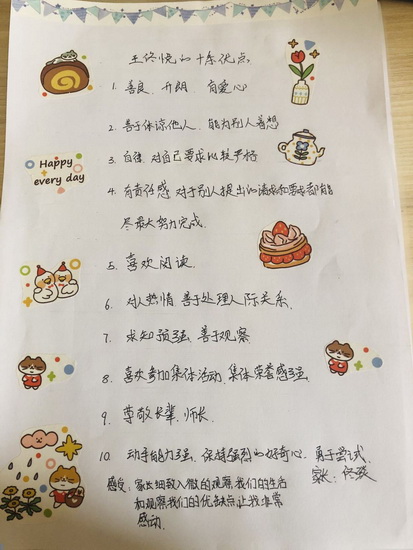 王佟悦的十条优点
1. 善良、开朗 有爱心
2. 善于体谅他人、能为别人着想
3. 自律、对自己要求比较严格
Happy
every day
4. 有责任感 对于别人提出的请求和要求都能
尽最大努力完成.
5. 喜欢阅读.
6. 对人热情 善于处理人际关系.
7. 求知欲强、善于观察
8. 喜欢参加集体活动、集体荣誉感强.
9. 尊敬长辈、师长.
10. 动手能力强、保持强烈的好奇心、勇于尝试.
家长:佟
感受:家长细致入微的观察我们的生活
和观察我们的优缺点让我非常
感动.